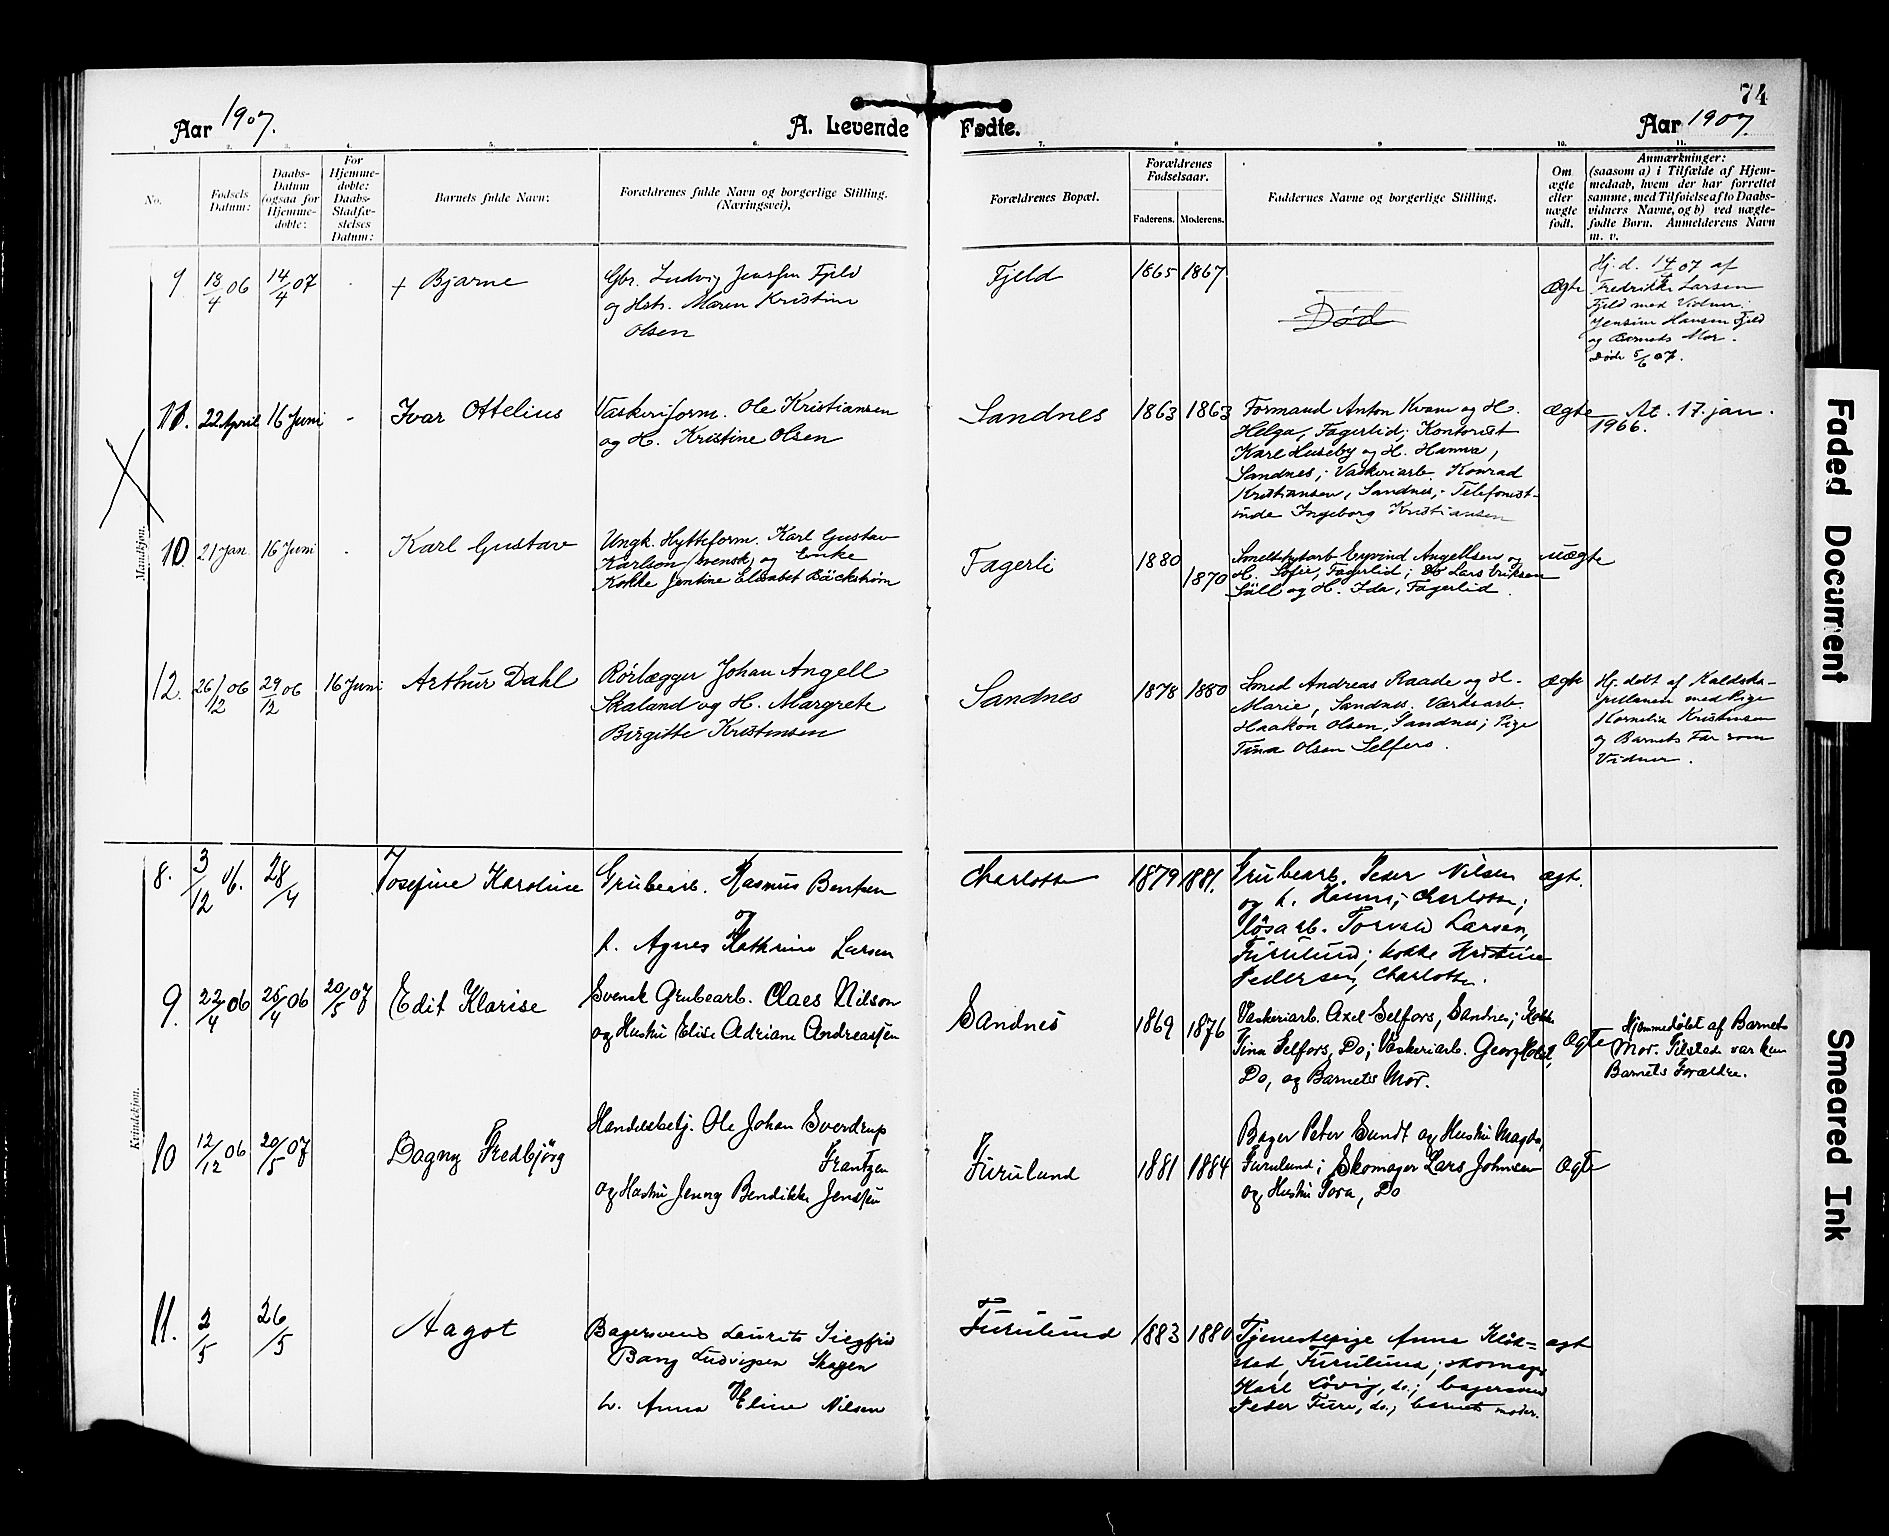 74
Aar 1907.
A. Levende Fødte.
Aar 1907
1. 2. 3. 4. 5. 6. 7. 8 9 10. 11.
No.
Fødsels Datum:
Daabs-Datum (ogsaa for Hjemme-døbte:
For Hjemme-døbte: Daabs-Stadfæ-stelses Datum:
Barnets fulde Navn:
Forældrenes fulde Navn og borgerlige Stilling. (Næringsvei).
Forældrenes Bopæl.
Forældrenes Fødselsaar.
Faderens. Moderens.
Faddernes Navne og borgerlige Stilling.
Om ægte eller uægte født.
Anmærkninger:
(saasom a) i Tilfælde af Hjem-
medaab, hvem der har forrettet
samme, med Tilføielse af to Daabs-
vidners Navne, og b) ved uægte-
fødte Børn. Anmelderens Navn
m. v.
Mandkjøn.
9 18/4 06 14/4 07 - + Bjarne
Gbr. Ludvig Jenssen Fjeld
og Hstr. Maren Kristine
Olsen
Fjeld 1865 1867
Død
Ægte
Hj. d. 14/4 07 af
Fredrikke Larsen
Fjeld med Vidner:
Jensine Hansen Fjeld
og Barnets Mor.
Døde 5/6 07.
11. 22 April 16 Juni - Ivar Ottelius
Vaskeriform. Ole Kristiansen
og H. Kristine Olsen
Sandnes 1863 1863
Formand Anton Kvam og H.
Helga, Fagerlid; Kontorist
Karl Huseby og H. Hanna,
Sandnes; Vaskeriarb. Konrad
Kristiansen, Sandnes; Telefonist-
inde Ingeborg Kristiansen
Ægte
At. 17. jan.
1966.
10 21 Jan. 16 Juni - Karl Gustav
Ungk. Hytteform. Karl Gustav
Karlson (svensk) og Enke
Kokke Jentine Elisabet Bäckström
Fagerli 1880 1870
Smeltehytarb Eyvind Angellsen og
H. Sofie, Fagerlid; Do Lars Eriksen
Säll og H. Ida, Fagerlid.
uægte
12. 26/12 06 29/12 06 16 Juni Arthur Dahl
Rørlægger Johan Angell
Skaland og H. Margrete
Birgitte Kristensen
Sandnes 1878 1880
Smed Andreas Raade og H.
Marie, Sandnes. Værksarb.
Haakon Olsen, Sandnes; Pige
Tina Olsen Selfors.
Ægte
Hj. døbt af Kaldska-
pellanen med Pige
Kornelia Kristensen
og Barnets Far som
Vidner.
Kvindekjøn.
8. 3/12 06. 28/4 Josefine Karoline
Grubearb. Rasmus Bentsen
og
h. Agnes Kathrine Larsen
Charlotta 1879 1881.
Grubearb. Peder Nilsen
og h. Hanna, Charlotta;
løsarb. Torvald Larsen,
Furulund; kokke Kristine
Pedersen, Charlotta.
ægt.
9. 22/4 06 25/4 06 20/5 07 Edit Klarise
Svensk Grubearb. Claes Nilson
og Hustru Elise Adriane Andreassen
Sandnes 1869 1876
Vaskeriarb. Axel Selfors, Sandnes; Kokke
Tina Selfors, Do; Vaskeriarb. Georg Holst,
Do, og Barnets Mor.
Ægte
Hjemmedøbt af Barnets
Mor. Tilstede var kun
Barnets Forældre.
10 12/12 06 20/5 07 Dagny Fredbjörg
Handelsbetj. Ole Johan Sverdrup
Frantzen
og Hustru Jenny Bendikke Jenssen
Furulund 1881 1884
Bager Peter Sundt og Hustru Magda,
Furulund; Skomager Lars Johnsen
og Hustru Tora, Do
Ægte
11. 2/5 26/5 Aagot
Bagersvend Laurits Siegfrid
Bang Ludvigsen Skagen
og
h. Anna Eline Nilsen
Furulund 1883 1880
Tjenestepige Anna Klök=
stad, Furulund; skomager
Karl Løvig, do.; bagersvend
Peder Fure, do., barnets moder.
ægt
Faded Document
Smeared Ink